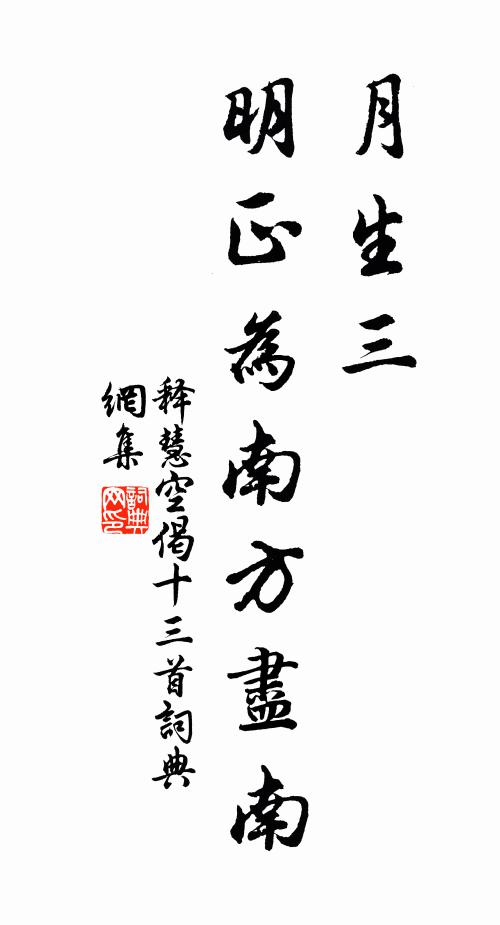 月生三
明正為南方盡南
释慧空偈十三首詞典
網集
詞典
网印